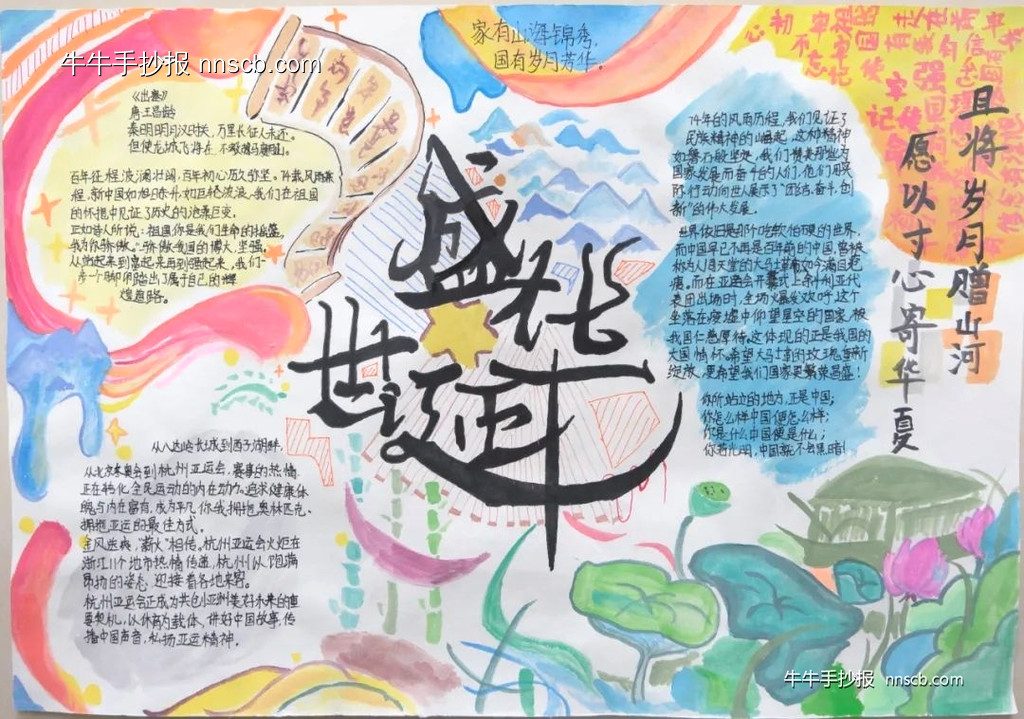 牛牛手抄报 nnscb.com
家有山海锦秀，
国有岁月芳华。
《出塞》
唐·王昌龄
秦时明月汉时关，万里长征人未还。
但使龙城飞将在，不教胡马度阴山。
百年征程波澜壮阔，百年初心历久弥坚。74载风雨兼
程，新中国如旭日东升，如巨轮流浪，我们在祖国
的怀抱中见证了历史的沧桑巨变。
正如诗人所说：祖国你是我们生命的摇篮，
我为你骄傲。骄傲我国的博大，坚强，
从站起来到富起来再到强起来，我们一
步一个脚印踏出了属于自己的辉
煌道路。
盛世华诞
74年的风雨历程，我们见证了
民族精神的崛起，这种精神
如磐石般坚定，我们赞美那些为
国家发展而奋斗的人们，他们用实
际行动向世人展示了“团结、奋斗、创
新”的伟大发展。
世界依旧是那个吃软怕硬的世界，
而中国早已不再是百年前的中国，曾被
称为人间天堂的大马士革而如今满目疮
痍。而在亚运会开幕式上杭州亚代
表团出场时，全场火爆发欢呼，这个
坐落在废墟中仰望星空的国家，被
我国仁慈厚待，这体现的正是我国的
大国情怀。希望大马士革的玫瑰重新
绽放，更希望我们国家更繁荣昌盛！
你所站立的地方，正是中国；
你怎么样中国便怎么样；
你是什么中国便是什么；
你若光明，中国就不会黑暗！
且将岁月赠山河
愿以寸心寄华夏
从八达岭长城到西子湖畔，
从北京冬奥会到杭州亚运会，赛事的热情
正在转化全民运动的内在动力。追求健康体
魄与内在富有，成为平凡你我拥抱奥林匹克、
拥抱亚运的最佳方式。
金风送爽，“薪火”相传。杭州亚运会火炬在
浙江11个地市热情传递，杭州以饱满
昂扬的姿态，迎接着各地来客。
杭州亚运会正成为共创亚洲美好未来的重
要契机，以体育为载体，讲好中国故事，传
播中国声音，弘扬亚运精神。
牛牛手抄报 nnscb.com